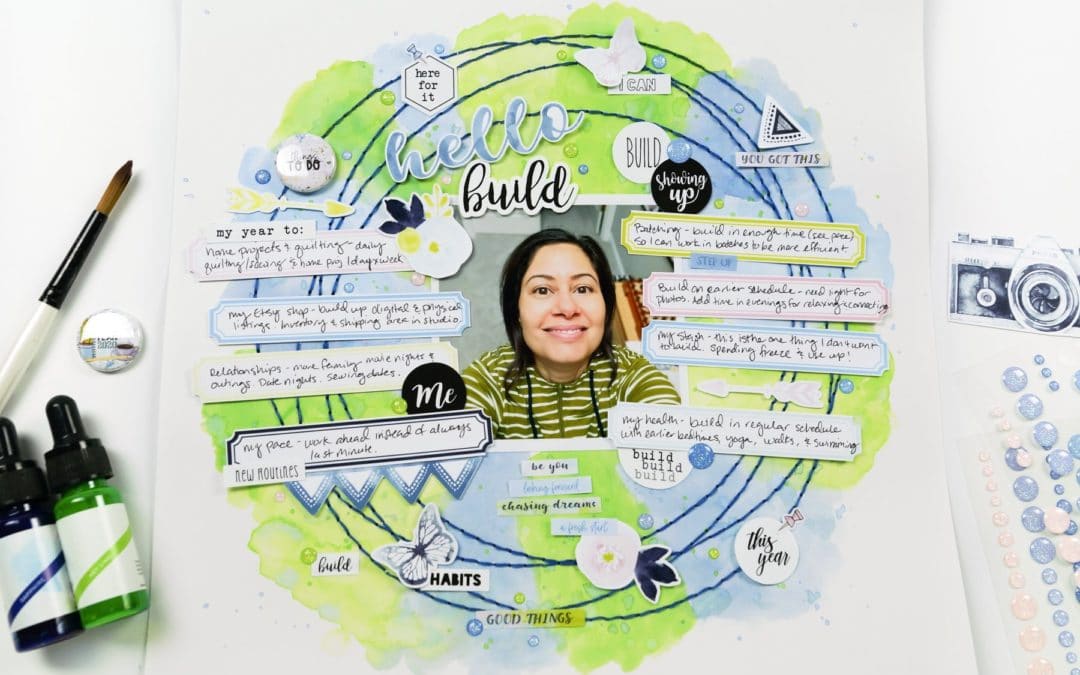 here
for
it
I CAN
hello
build
BUILD
showing
up
YOU GOT THIS
TO DO
my year to:
Home projects & quilting - daily
quilting/sewing & home proj 1 day a week
Batching - build in enough time (see pace)
so I can work in batches to be more efficient
STEP UP
Build an earlier schedule - need light for
photos. Add time in evenings for relaxing & connecting
my Etsy shop - build up digital & physical
listings. Inventory & shipping area in studio.
my stash - this is the one thing I don't want
to build. Spending freeze & use up!
Relationships - more family movie nights &
outings. Date nights. Sewing dates.
Me
my pace - work ahead instead of always
last minute.
NEW ROUTINES
my health - build in regular schedule
with earlier bedtimes, yoga, walks, & swimming
build
build
build
be you
looking forward
chasing dreams
a fresh start
this
year
build
HABITS
GOOD THINGS
2020